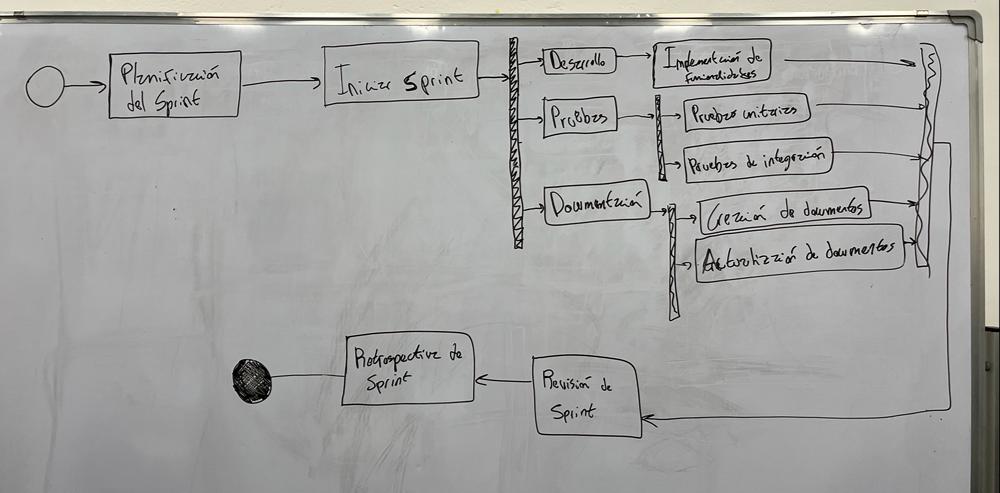 Planificación
del Sprint
Iniciar Sprint
Desarrollo
Implementación de
Pruebas
Pruebas unitarias
Pruebas de integración
Documentación
Creación de documentos
Actualización de documentos
Retrospectiva de
Sprint
Revisión de
Sprint